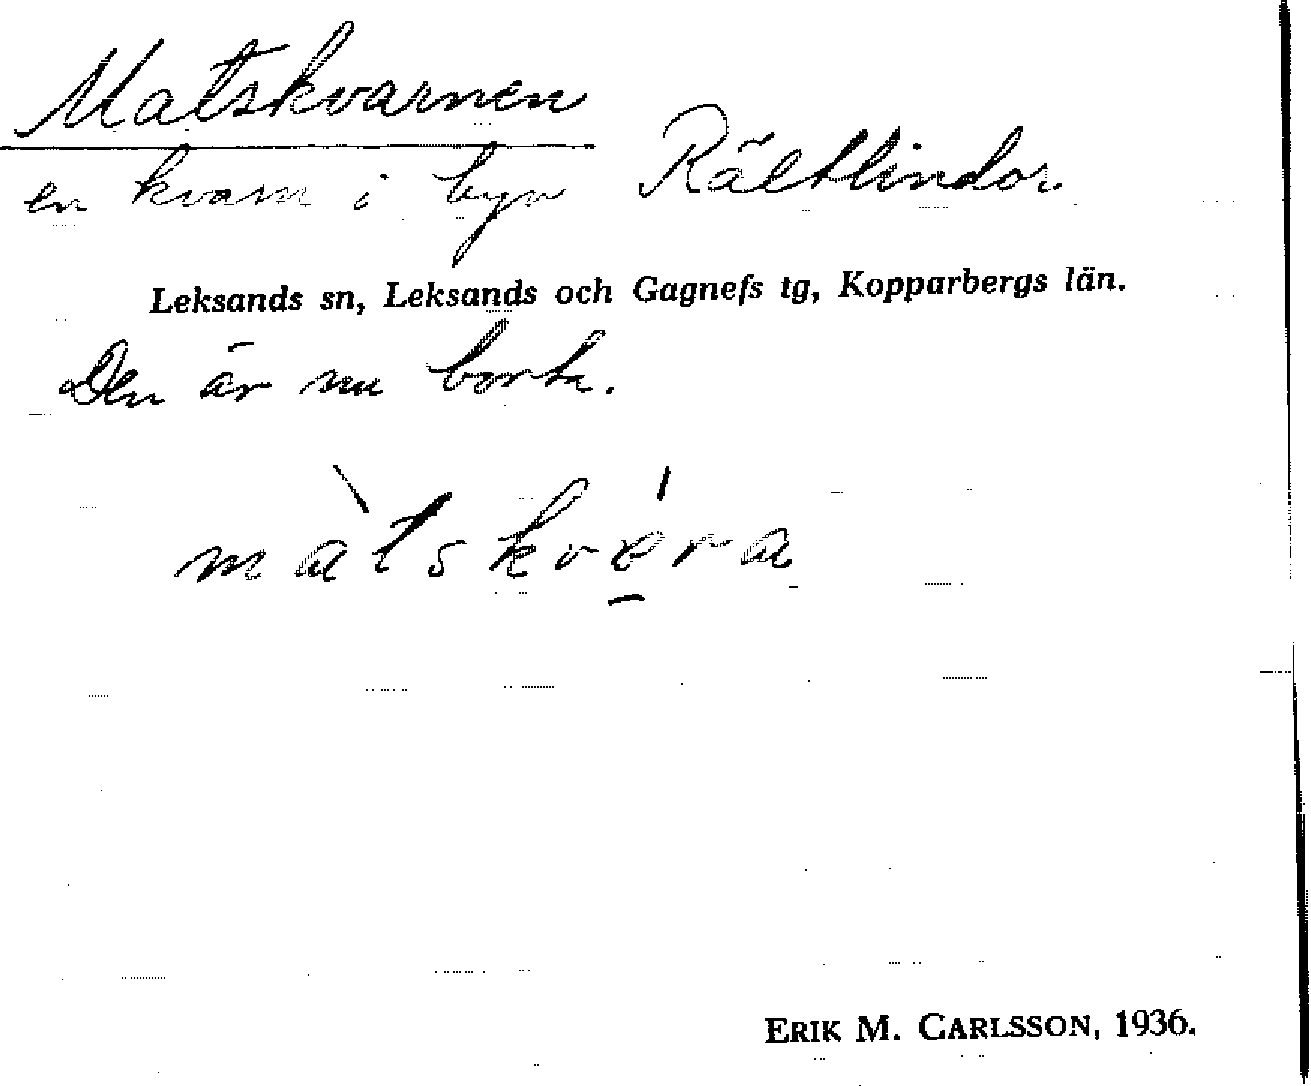 Matskvarnen
en kvarn i byn Rältlindor
Leksands sn, Leksands och Gagnefs tg, Kopparbergs län.
Den är nu borta.
ERIK M. CARLSSON, 1936.